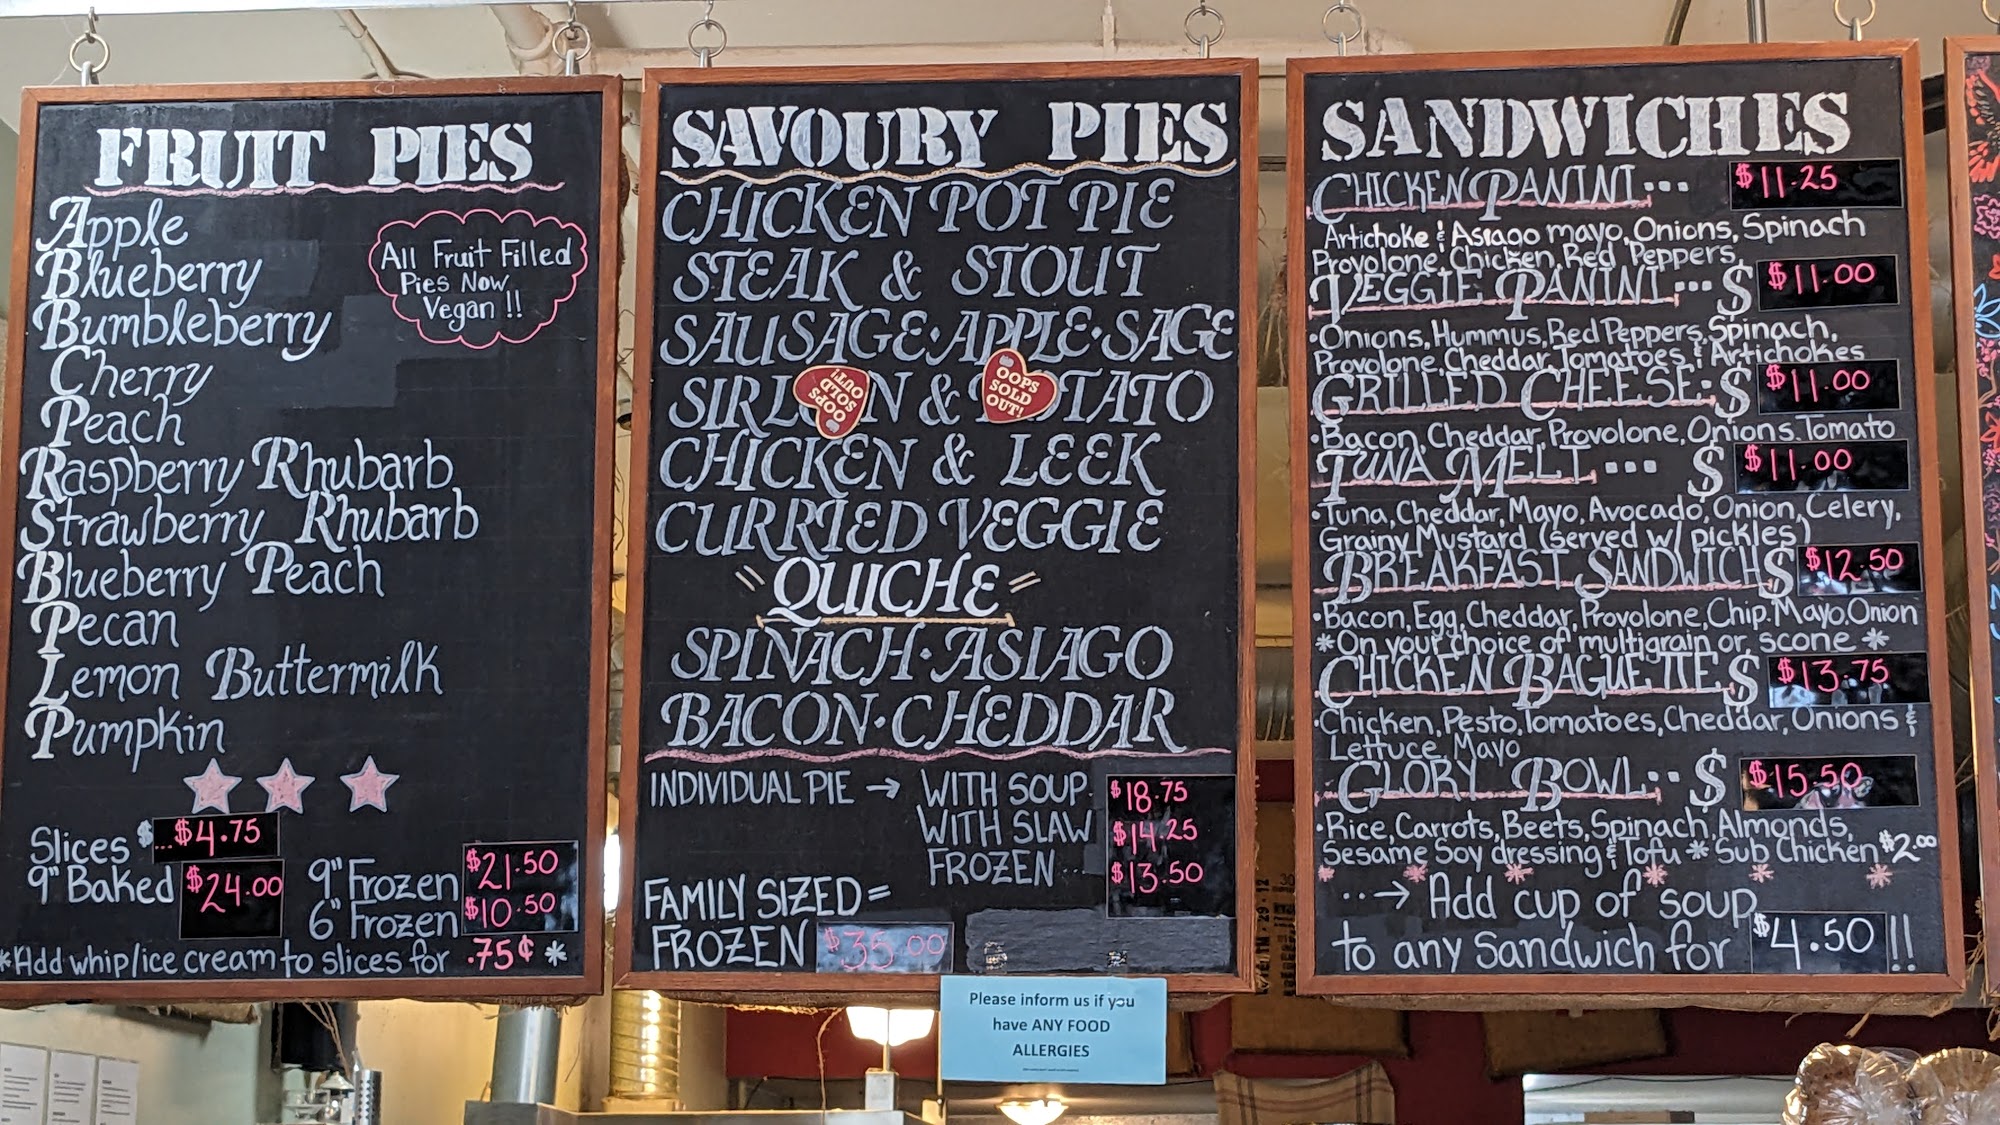 FRUIT PIES
Apple
Blueberry
Bumbleberry
Cherry
Peach
Raspberry Rhubarb
Strawberry Rhubarb
Blueberry Peach
Pecan
Lemon Buttermilk
Pumpkin
All Fruit Filled
Pies Now
Vegan !!
Slices $ ...$4.75
9" Baked $24.00
9" Frozen $21.50
6" Frozen $10.50
*Add whip/ice cream to slices for .75¢ *
SAVOURY PIES
CHICKEN POT PIE
STEAK & STOUT
SAUSAGE·APPLE·SAGE
SIRLOIN & POTATO
OOPS
SOLD
OUT!
OOPS
SOLD
OUT!
CHICKEN & LEEK
CURRIED VEGGIE
"QUICHE"
SPINACH·ASIAGO
BACON·CHEDDAR
INDIVIDUAL PIE → WITH SOUP $18.75
WITH SLAW $14.25
FROZEN ... $13.50
FAMILY SIZED =
FROZEN $35.00
Please inform us if you
have ANY FOOD
ALLERGIES
SANDWICHES
CHICKEN PANINI... $11.25
Artichoke & Asiago mayo, Onions, Spinach
Provolone, Chicken, Red Peppers,
VEGGIE PANINI...$ $11.00
·Onions, Hummus, Red Peppers, Spinach,
Provolone, Cheddar, Tomatoes & Artichokes
GRILLED CHEESE:$ $11.00
·Bacon, Cheddar, Provolone, Onions, Tomato
TUNA MELT... $ $11.00
·Tuna, Cheddar, Mayo, Avocado, Onion, Celery,
Grainy Mustard (served w/ pickles)
BREAKFAST SANDWICH $ $12.50
·Bacon, Egg, Cheddar, Provolone, Chip. Mayo, Onion
*On your choice of multigrain or scone *
CHICKEN BAGUETTE $ $13.75
·Chicken, Pesto, Tomatoes, Cheddar, Onions &
Lettuce, Mayo
GLORY BOWL.. $ $15.50
·Rice, Carrots, Beets, Spinach, Almonds,
Sesame Soy dressing & Tofu * Sub Chicken $2.00
...→ Add cup of soup
to any sandwich for $4.50 !!